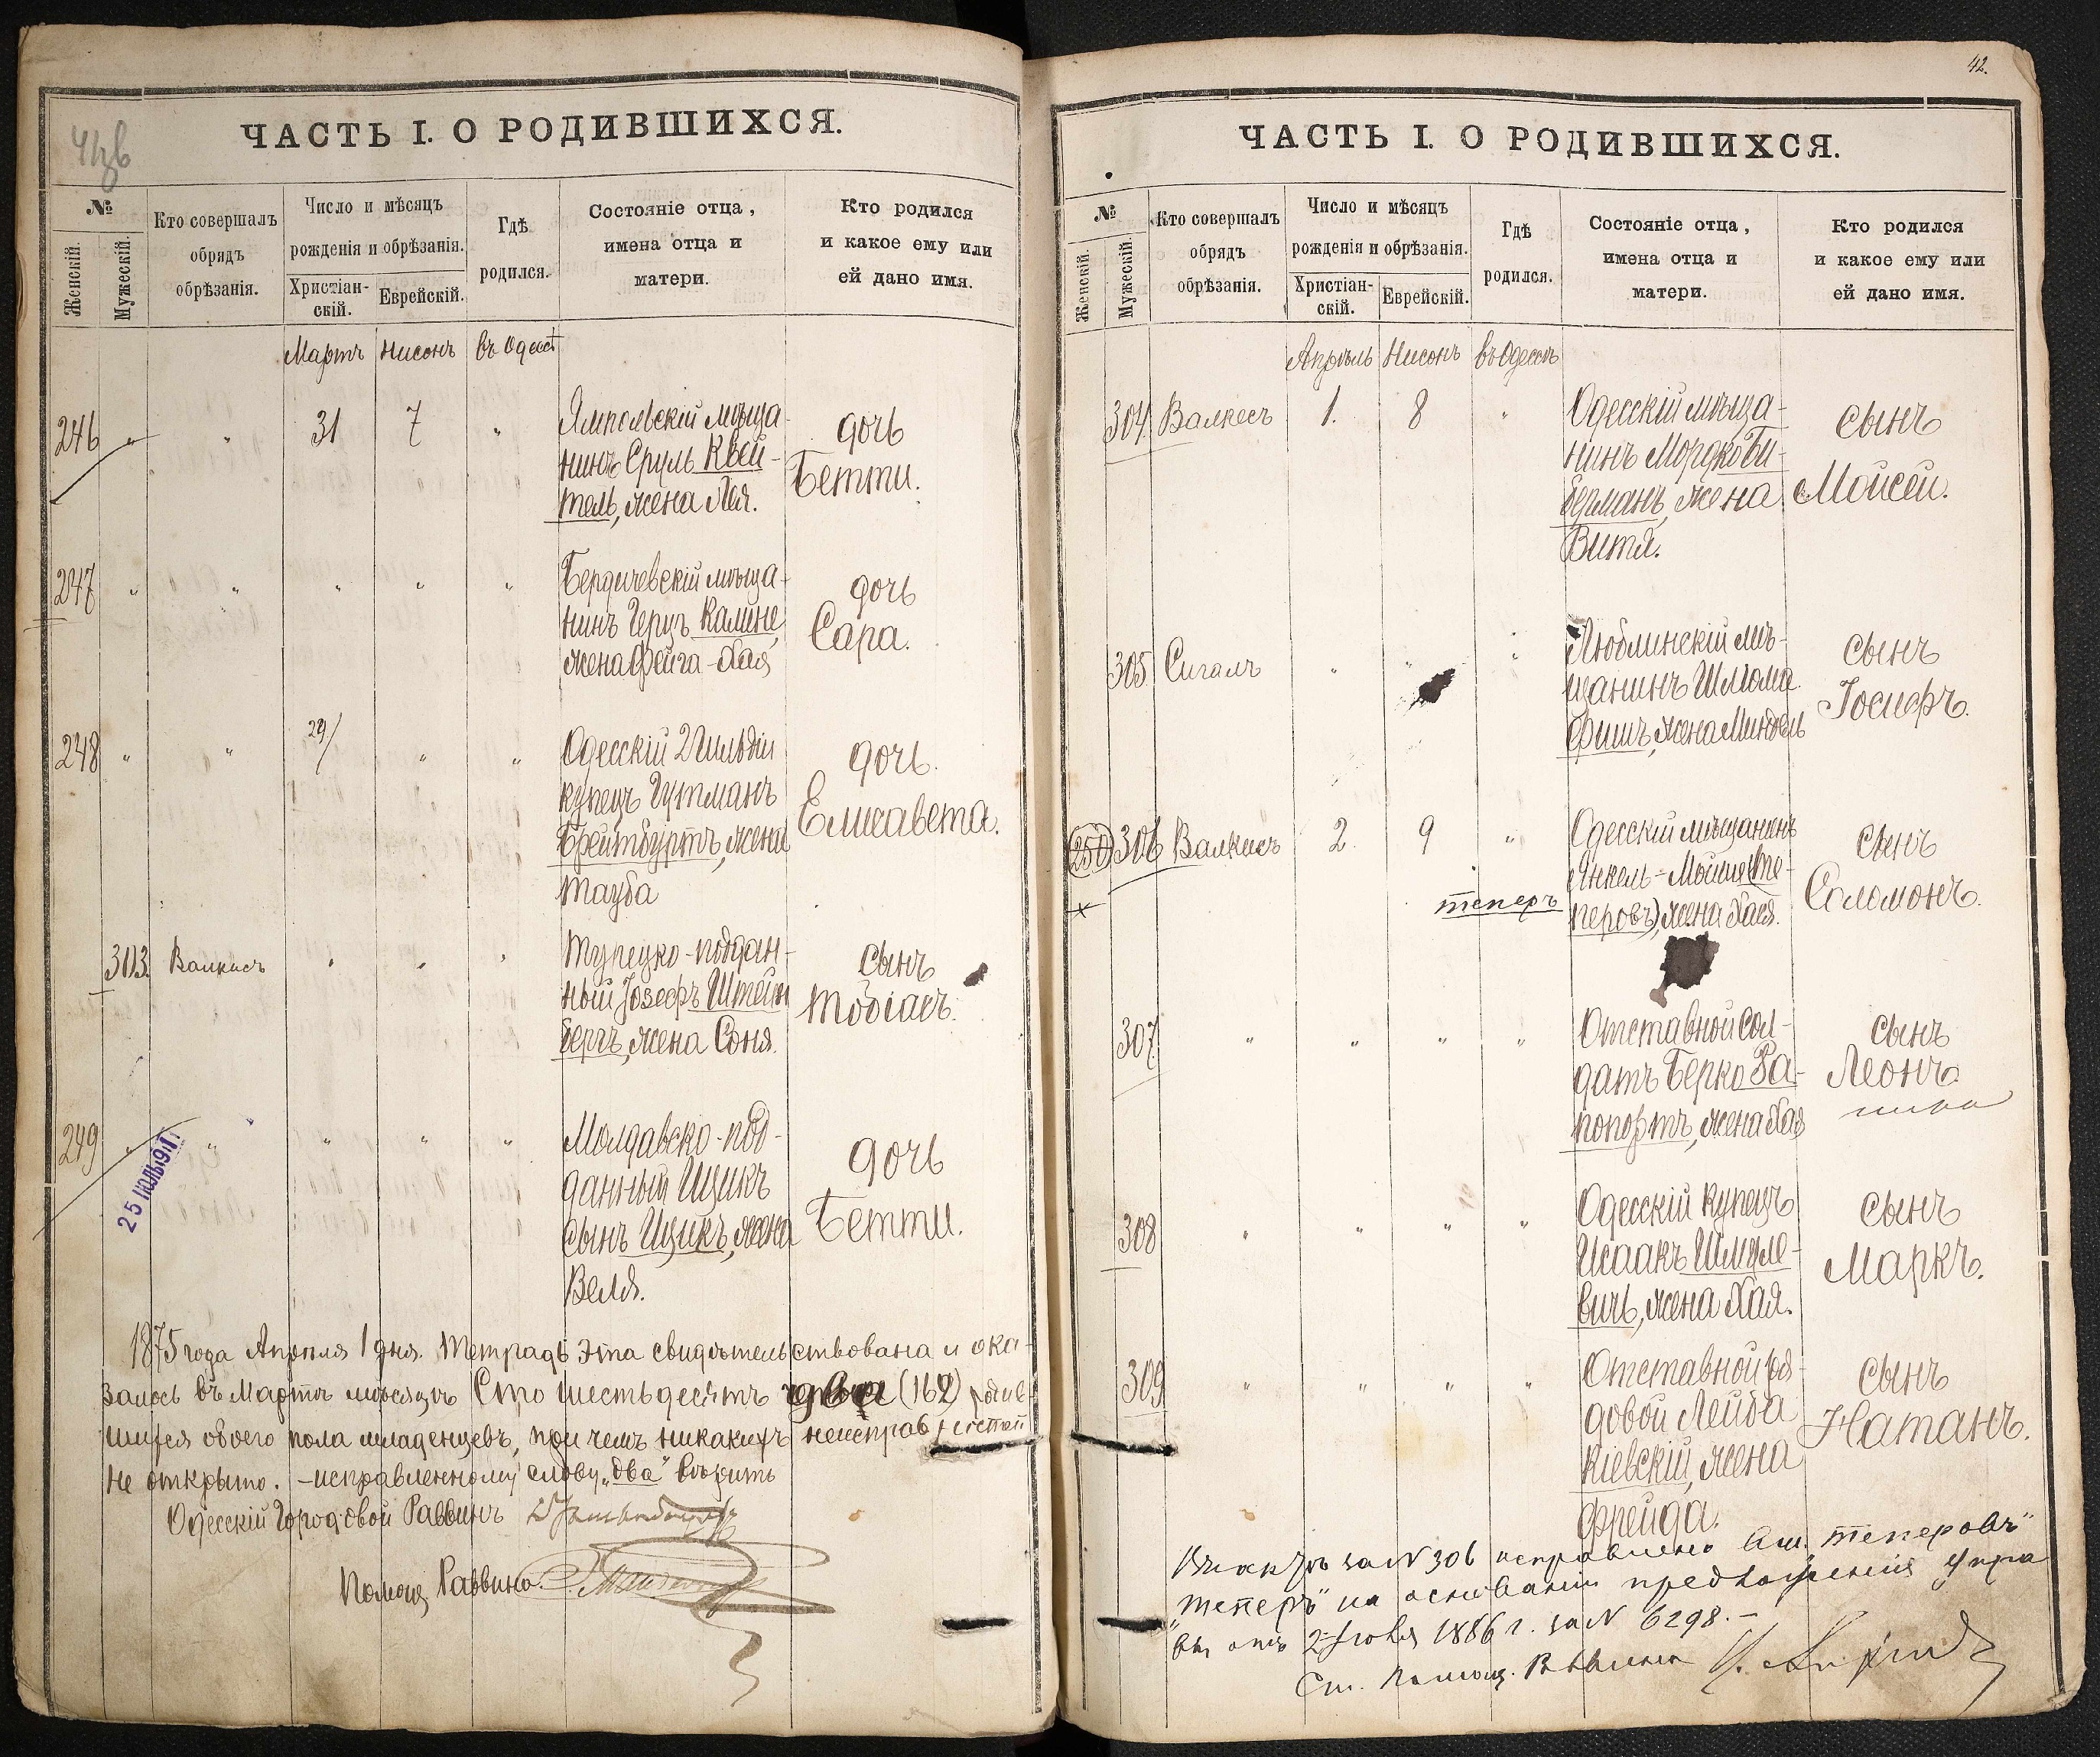 41об
ЧАСТЬ I. О РОДИВШИХСЯ.
№
Женскій.
Мужескій.
Кто совершалъ
обрядъ
обрѣзанія.
Число и мѣсяцъ
рожденія и обрѣзанія.
Христіан-
скій.
Еврейскій.
Гдѣ
родился.
Состояніе отца,
имена отца и
матери.
Кто родился
и какое ему или
ей дано имя.
Мартъ Нисонъ въ Одессѣ
246 " " 31 7 "
Ямпольскій мѣща-
нинъ Сруль Квей-
тель, жена Лея.
дочь
Бетти.
247 " " " " "
Бердичевскій мѣща-
нинъ Герцъ Калине,
жена Фейга-Хая
дочь
Сара.
248 " " 29/ " "
Одесскій 2 Гильдіи
купецъ Гутманъ
Брейтбуртъ, жена
Тауба
дочь.
Елисавета.
303. Валкисъ " " "
Турецко-поддан-
ный Jозефъ Штейн
бергъ, жена Соня.
сынъ
Тобіасъ.
249 " " " " "
25 ІЮЛЬ 191
Молдавско-под-
данный Ицикъ
сынъ Ицикъ, жена
Веля.
дочь
Бетти.
1875 года Апрѣля 1 дня. Тетрадь эта свидѣтельствована и ока-
залось въ Мартѣ мѣсяцѣ Сто шестьдесятъ два (162) родив-
шихся обоего пола младенцевъ, при чемъ никакихъ неисправностей
не открыто. – исправленному слову "два" вѣрить
Одесскій Городовой Раввинъ
Помощ. Раввина.
42.
ЧАСТЬ I. О РОДИВШИХСЯ.
№
Женскій.
Мужескій.
Кто совершалъ
обрядъ
обрѣзанія.
Число и мѣсяцъ
рожденія и обрѣзанія.
Христіан-
скій.
Еврейскій.
Гдѣ
родился.
Состояніе отца,
имена отца и
матери.
Кто родился
и какое ему или
ей дано имя.
Апрѣль Нисонъ въ Одессѣ
304 Валкесъ 1. 8 "
Одесскій мѣща-
нинъ Мордко Би-
берманъ, жена
Витя.
сынъ
Мойсей.
305 Сигалъ " " "
Люблинскій мѣ-
щанинъ Шлома
Фишъ, жена Миндель
сынъ
Іосифъ.
250 306 Валкисъ 2. 9 "
Одесскій мѣщанинъ
Янкель-Мойше (Те-
теперъ
перовъ), жена Хая.
сынъ
Соломонъ.
307 " " " "
Отставной сол-
датъ Берко Ра-
попортъ, жена Хая
сынъ
Леонъ
308 " " " "
Одесскій купецъ
Исаакъ Шмуле-
вичъ, жена Хая.
сынъ
Маркъ.
309 " " " "
Отставной ря-
довой Лейба
Кіевскій, жена
Фрейда.
сынъ
Натанъ.
В актѣ за N 306 исправлено вм. Теперовъ"
"Теперъ" на основаніи предложенія Упра
вы отъ 2 Іюля 1886 г. за N 6298.–
Ст. Помощ. Раввина